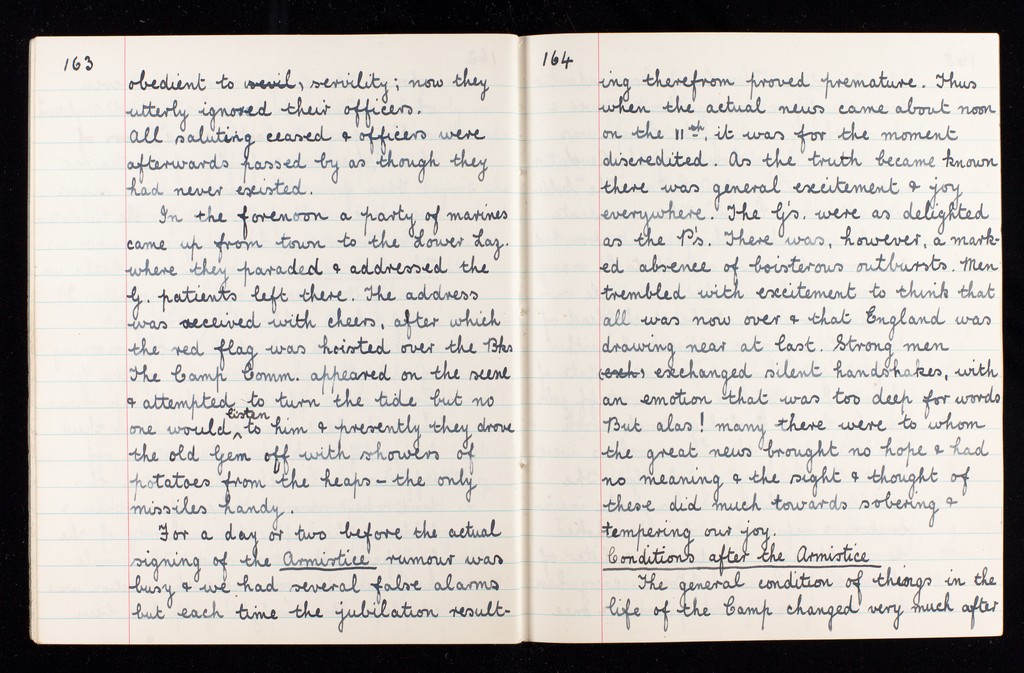 163
obedient to sevil, servility; now they
utterly ignored their officers.
All saluting ceased & officers were
afterwards passed by as though they
had never existed.
In the forenoon a party of marines
came up from town to the Lower Laz.
where they paraded & addressed the
G. patients left there. The address
was received with cheers, after which
the red flag was hoisted over the Bks
The Camp Comm. appeared on the scene
& attempted to turn the tide but no
one would listen to him & presently they drove
the old Gem off with showers of
potatoes from the heaps – the only
missiles handy.
For a day or two before the actual
signing of the Armistice rumour was
busy & we had several false alarms
but each time the jubilation result-
164
ing therefrom proved premature. Thus
when the actual news came about noon
on the 11th, it was for the moment
discredited. As the truth became known
there was general excitement & joy
everywhere. The G's. were as delighted
as the P's. There was, however, a mark-
ed absence of boisterous outbursts. Men
trembled with excitement to think that
all was now over & that England was
drawing near at last. Strong men
(exch) exchanged silent handshakes, with
an emotion that was too deep for words
But alas! many there were to whom
the great news brought no hope & had
no meaning & the sight & thought of
these did much towards sobering &
tempering our joy.
Conditions after the Armistice
The general condition of things in the
life of the Camp changed very much after